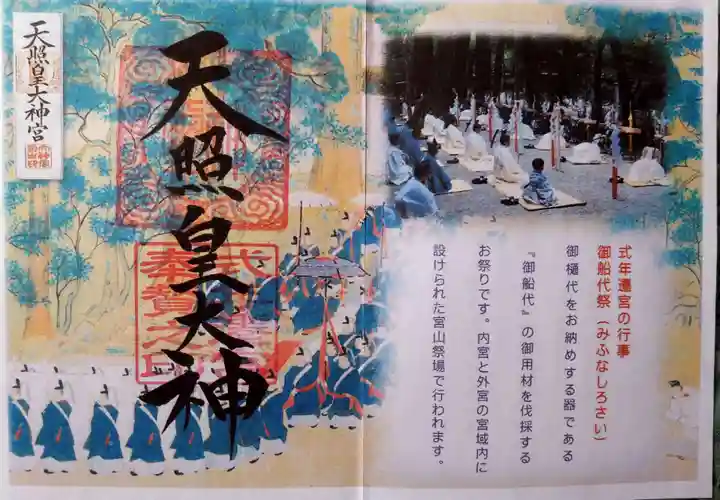 天照皇大神宮
天照皇大神
奉賀之印
式年遷宮の行事
御船代祭（みふなしろさい）
御樋代をお納めする器である
『御船代』の御用材を伐採する
お祭りです。内宮と外宮の宮域内に
設けられた宮山祭場で行われます。